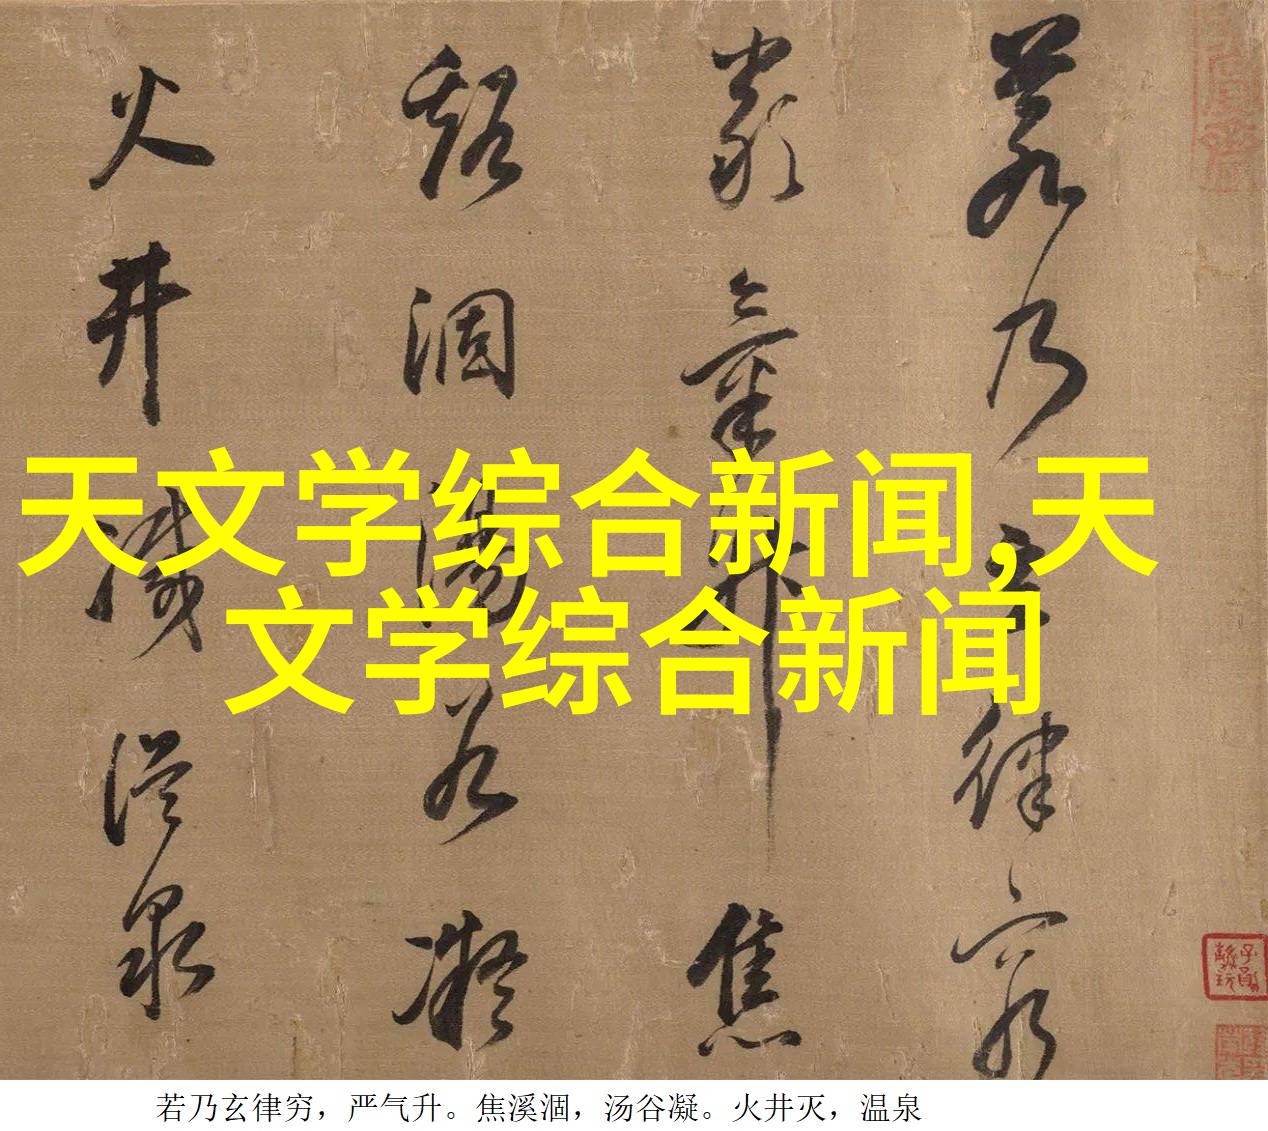 若乃玄律窮
嚴氣升焦
谿涸湯谷凝
火井滅溫泉
天文学综合新闻,天
文学综合新闻
若乃玄律穷，严气升。焦溪涸，汤谷凝。火井灭，温泉